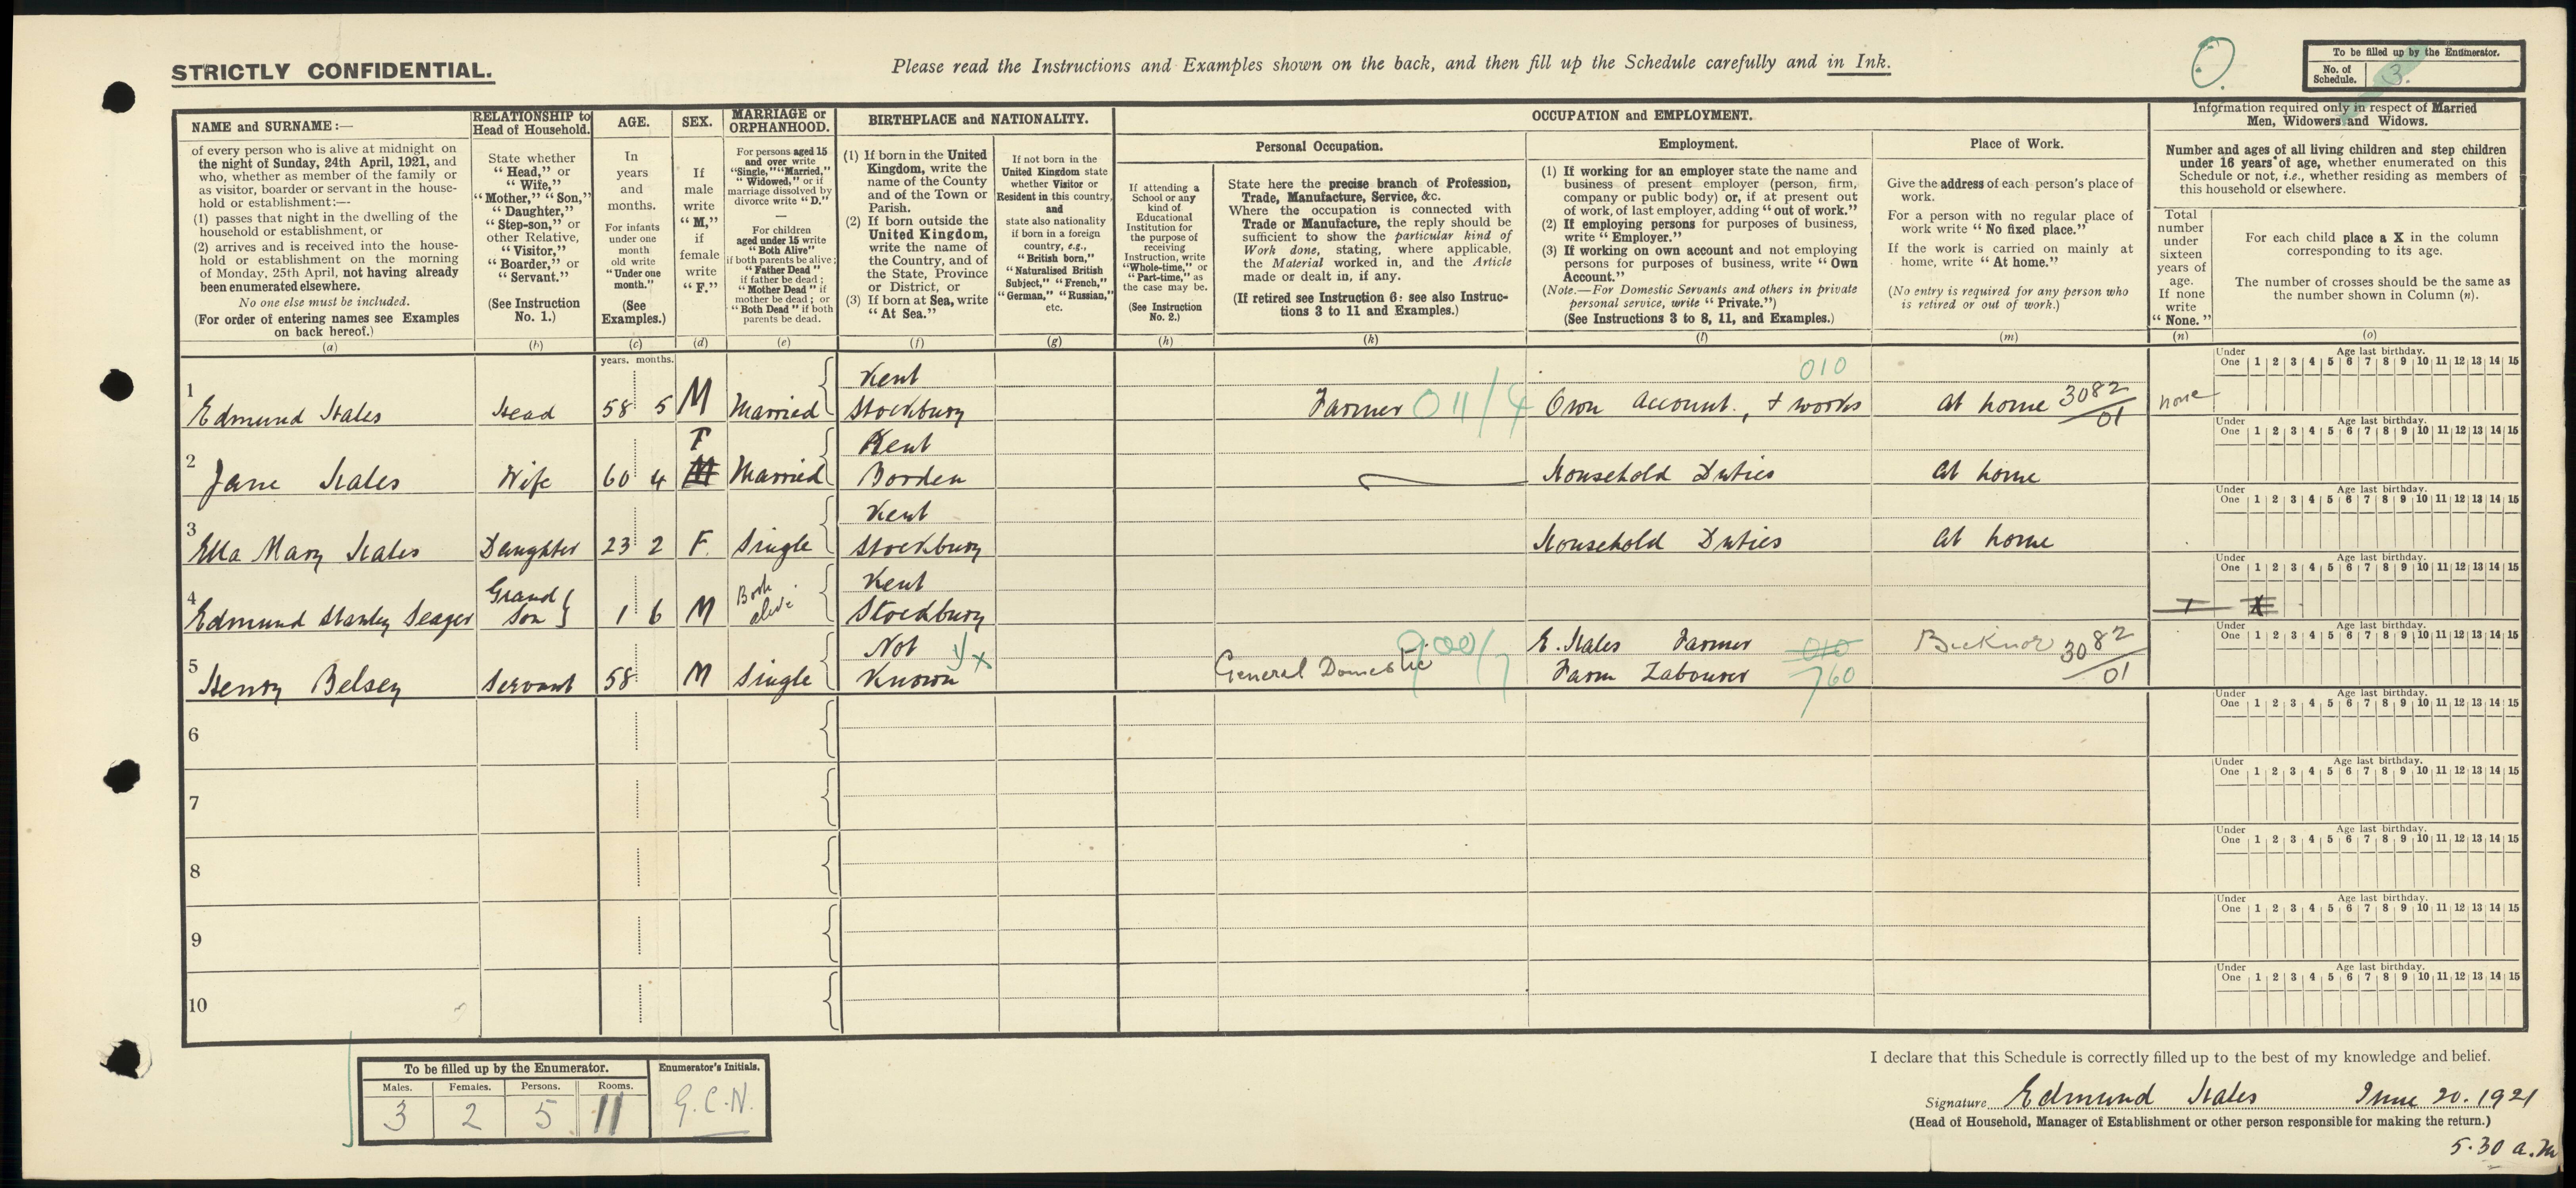 STRICTLY CONFIDENTIAL.
Please read the Instructions and Examples shown on the back, and then fill up the Schedule carefully and in Ink.
To be filled up by the Enumerator.
No. of Schedule. 3.
NAME and SURNAME:—
of every person who is alive at midnight on
the night of Sunday, 24th April, 1921, and
who, whether as member of the family or
as visitor, boarder or servant in the house-
hold or establishment:—
(1) passes that night in the dwelling of the
household or establishment, or
(2) arrives and is received into the house-
hold or establishment on the morning
of Monday, 25th April, not having already
been enumerated elsewhere.
No one else must be included.
(For order of entering names see Examples
on back hereof.)
(a)
RELATIONSHIP to
Head of Household.
State whether
"Head," or
"Wife,"
"Mother," "Son,"
"Daughter,"
"Step-son," or
other Relative,
"Visitor,"
"Boarder," or
"Servant."
(See Instruction
No. 1.)
(b)
AGE.
In
years
and
months.
For infants
under one
month
old write
"Under one
month."
(See
Examples.)
(c)
SEX.
If
male
write
"M,"
if
female
write
"F."
(d)
MARRIAGE or
ORPHANHOOD.
For persons aged 15
and over write
"Single," "Married,"
"Widowed," or if
marriage dissolved by
divorce write "D."
—
For children
aged under 15 write
"Both Alive"
if both parents be alive;
"Father Dead"
if father be dead;
"Mother Dead" if
mother be dead; or
"Both Dead" if both
parents be dead.
(e)
BIRTHPLACE and NATIONALITY.
(1) If born in the United
Kingdom, write the
name of the County
and of the Town or
Parish.
(2) If born outside the
United Kingdom,
write the name of
the Country, and of
the State, Province
or District, or
(3) If born at Sea, write
"At Sea."
(f)
If not born in the
United Kingdom state
whether Visitor or
Resident in this country,
and
state also nationality
if born in a foreign
country, e.g.,
"British born,"
"Naturalised British
Subject," "French,"
"German," "Russian,"
etc.
(g)
OCCUPATION and EMPLOYMENT.
Personal Occupation.
If attending a
School or any
kind of
Educational
Institution for
the purpose of
receiving
Instruction, write
"Whole-time," or
"Part-time," as
the case may be.
(See Instruction
No. 2.)
(h)
State here the precise branch of Profession,
Trade, Manufacture, Service, &c.
Where the occupation is connected with
Trade or Manufacture, the reply should be
sufficient to show the particular kind of
Work done, stating, where applicable,
the Material worked in, and the Article
made or dealt in, if any.
(If retired see Instruction 6: see also Instruc-
tions 3 to 11 and Examples.)
(k)
Employment.
(1) If working for an employer state the name and
business of present employer (person, firm,
company or public body) or, if at present out
of work, of last employer, adding "out of work."
(2) If employing persons for purposes of business,
write "Employer."
(3) If working on own account and not employing
persons for purposes of business, write "Own
Account."
(Note.—For Domestic Servants and others in private
personal service, write "Private.")
(See Instructions 3 to 8, 11, and Examples.)
(l)
Place of Work.
Give the address of each person's place of
work.
For a person with no regular place of
work write "No fixed place."
If the work is carried on mainly at
home, write "At home."
(No entry is required for any person who
is retired or out of work.)
(m)
Information required only in respect of Married
Men, Widowers and Widows.
Number and ages of all living children and step children
under 16 years of age, whether enumerated on this
Schedule or not, i.e., whether residing as members of
this household or elsewhere.
Total
number
under
sixteen
years of
age.
If none
write
"None."
(n)
For each child place a X in the column
corresponding to its age.
The number of crosses should be the same as
the number shown in Column (n).
(o)
years. months.
Under Age last birthday.
One 1 2 3 4 5 6 7 8 9 10 11 12 13 14 15
1 Edmund Hales Head 58 5 M Married Kent Stockbury Farmer 011/4 Own account, & works 010 At home 3082/01 none
Under Age last birthday.
One 1 2 3 4 5 6 7 8 9 10 11 12 13 14 15
2 Jane Hales Wife 60 4 F Married Kent Borden Household Duties At home
Under Age last birthday.
One 1 2 3 4 5 6 7 8 9 10 11 12 13 14 15
3 Ella Mary Hales Daughter 23 2 F. Single Kent Stockbury Household Duties At home
Under Age last birthday.
One 1 2 3 4 5 6 7 8 9 10 11 12 13 14 15
4 Edmund Stanley Seager Grand Son 1 6 M Both alive Kent Stockbury
Under Age last birthday.
One 1 2 3 4 5 6 7 8 9 10 11 12 13 14 15
5 Henry Belsey Servant 58 M Single Not Known General Domestic 900/7 E. Hales Farmer 010 Farm Labourer 760 Bicknor 3082/01
Under Age last birthday.
One 1 2 3 4 5 6 7 8 9 10 11 12 13 14 15
6
Under Age last birthday.
One 1 2 3 4 5 6 7 8 9 10 11 12 13 14 15
7
Under Age last birthday.
One 1 2 3 4 5 6 7 8 9 10 11 12 13 14 15
8
Under Age last birthday.
One 1 2 3 4 5 6 7 8 9 10 11 12 13 14 15
9
Under Age last birthday.
One 1 2 3 4 5 6 7 8 9 10 11 12 13 14 15
10
To be filled up by the Enumerator.
Males. Females. Persons. Rooms.
3 2 5 11
Enumerator's Initials.
G.C.N.
I declare that this Schedule is correctly filled up to the best of my knowledge and belief.
Signature Edmund Hales June 20. 1921
(Head of Household, Manager of Establishment or other person responsible for making the return.)
5.30 a.m